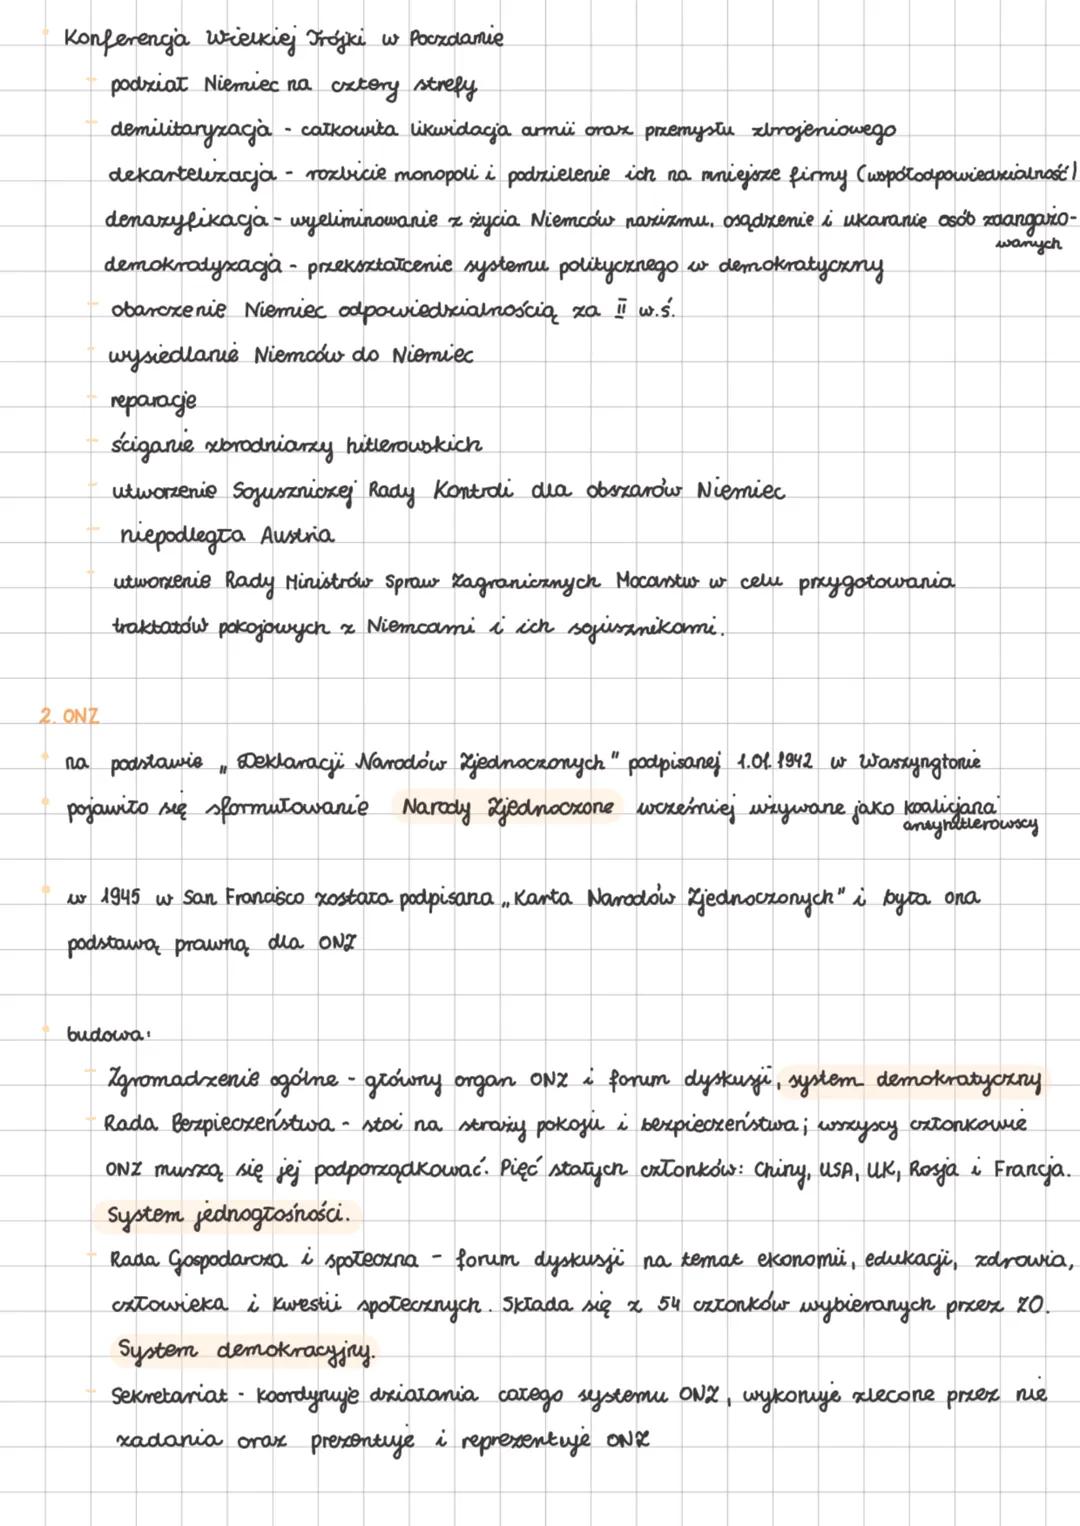 Konferencja Wielkiej Trójki w Poczdamie
- podział Niemiec na cztery strefy
- demilitaryzacja - całkowita likwidacja armii oraz przemysłu zbrojeniowego
dekartelizacja - rozbicie monopoli i podzielenie ich na mniejsze firmy (współodpowiedzialność)
denazyfikacja - wyeliminowanie z życia Niemców nazizmu, osądzenie i ukaranie osób zaangażo-
wanych
demokratyzacja - przekształcenie systemu politycznego w demokratyczny
- obarczenie Niemiec odpowiedzialnością za II w.ś.
- wysiedlanie Niemców do Niemiec
- reparacje
- ściganie zbrodniarzy hitlerowskich
- utworzenie Sojuszniczej Rady Kontroli dla obszarów Niemiec
- niepodległa Austria
- utworzenie Rady Ministrów Spraw Zagranicznych Mocarstw w celu przygotowania
traktatów pokojowych z Niemcami i ich sojusznikami.
2. ONZ
• na podstawie „Deklaracji Narodów Zjednoczonych" podpisanej 1.01.1942 w Waszyngtonie
• pojawiło się sformułowanie Narody Zjednoczone wcześniej używane jako koalicjana
antyhitlerowscy
• w 1945 w San Francisco została podpisana „Karta Narodów Zjednoczonych" i była ona
podstawą prawną dla ONZ
• budowa:
- Zgromadzenie ogólne - główny organ ONZ i forum dyskusji, system demokratyczny
- Rada Bezpieczeństwa - stoi na straży pokoju i bezpieczeństwa; wszyscy członkowie
ONZ muszą się jej podporządkować. Pięć stałych członków: Chiny, USA, UK, Rosja i Francja.
System jednogłośności.
- Rada Gospodarcza i społeczna - forum dyskusji na temat ekonomii, edukacji, zdrowia,
człowieka i kwestii społecznych. Składa się z 54 członków wybieranych przez ZO.
System demokracyjny.
- Sekretariat - koordynuje działania całego systemu ONZ, wykonuje zlecone przez nie
zadania oraz prezentuje i reprezentuje ONZ